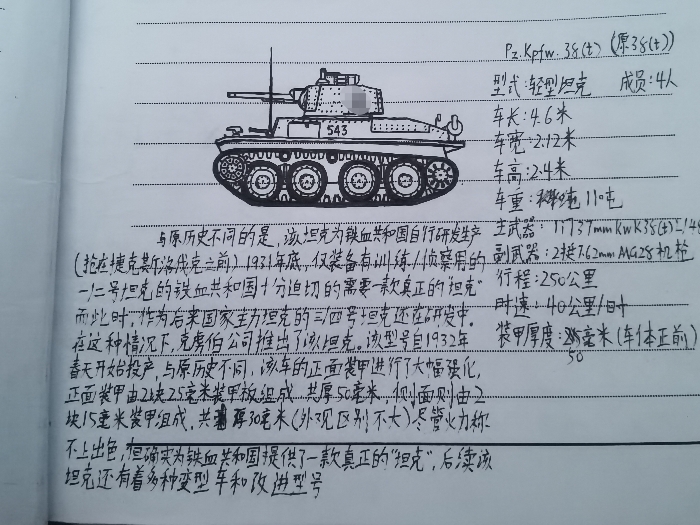 Pz.Kpfw.38(t) (原38(t))
型式:轻型坦克 成员:4人
车长:4.6米
车宽:2.12米
车高:2.4米
车重: 11吨
主武器: 1门37mm KwK38(t)
副武器:2挺7.62mm MG28机枪
行程:250公里
时速:40公里/时
装甲厚度:50毫米(车体正前)
543
与原历史不同的是,该坦克为铁血共和国自行研发生产
(抢在捷克斯洛伐克之前)1931年底,仅装备有训练/侦察用的
一/二号坦克的铁血共和国十分迫切的需要一款真正的"坦克"
而此时,作为后来国家主力坦克的三/四号坦克还在研发中.
在这种情况下,克虏伯公司推出了该坦克。该型号自1932年
春天开始投产,与原历史不同,该车的正面装甲进行了大幅强化,
正面装甲由2块25毫米装甲板组成,共厚50毫米,侧面则由2
块15毫米装甲组成,共厚30毫米(外观区别不大)尽管火力称
不上出色,但确实为铁血共和国提供了一款真正的"坦克",后续该
坦克还有着多种变型车和改进型号